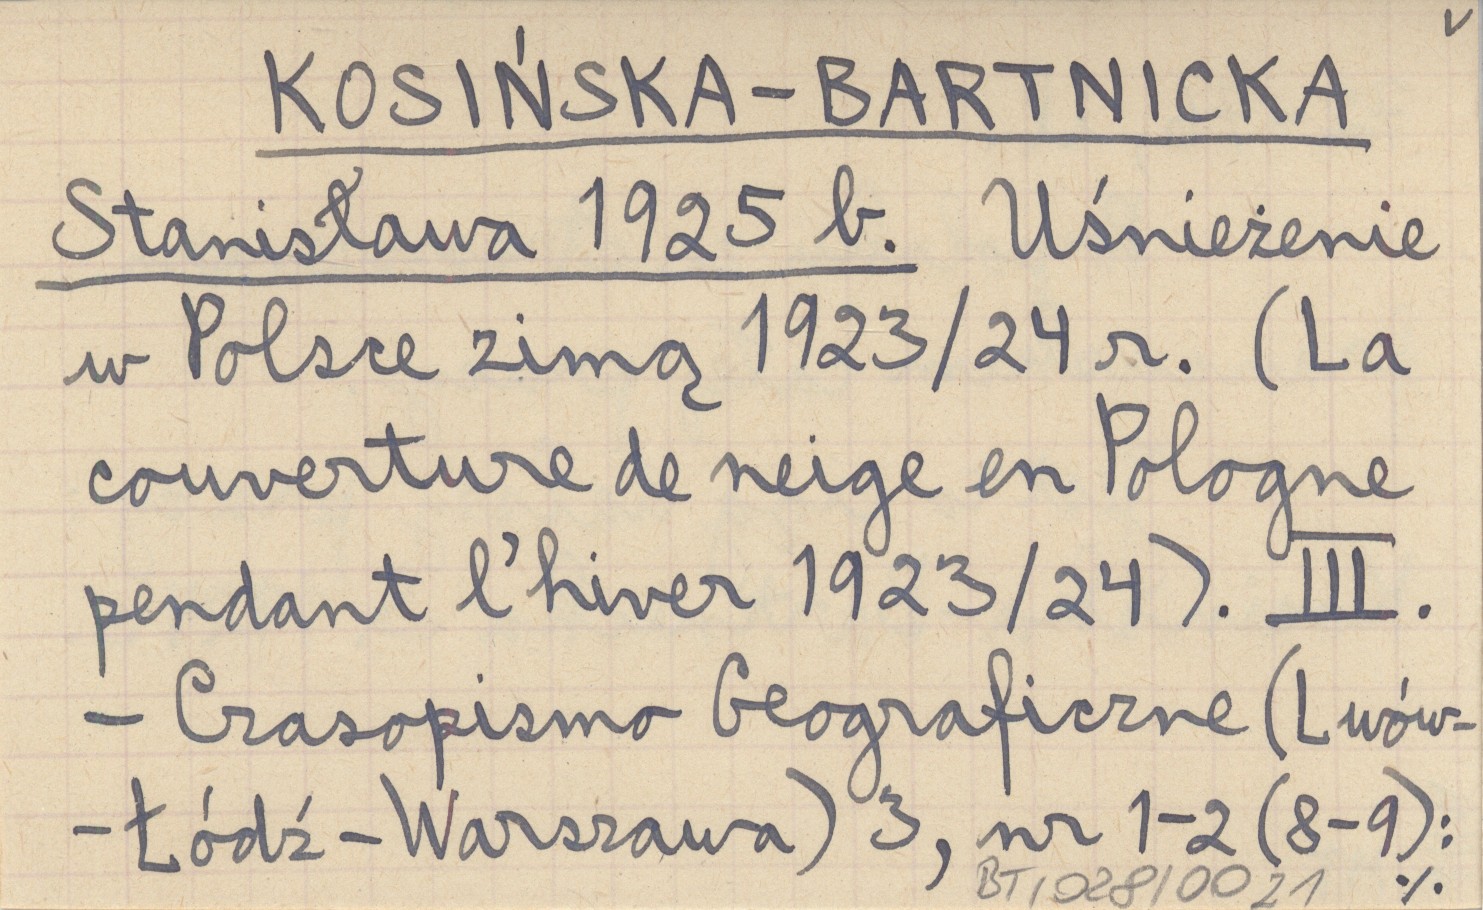 v
KOSIŃSKA-BARTNICKA
Stanisława 1925 b. Uśnieżenie
w Polsce zimą 1923/24 r. (La
couverture de neige en Pologne
pendant l'hiver 1923/24). III.
- Czasopismo Geograficzne (Lwów-
-Łódź-Warszawa) 3, nr 1-2 (8-9):
BT/028/0021 ·/.